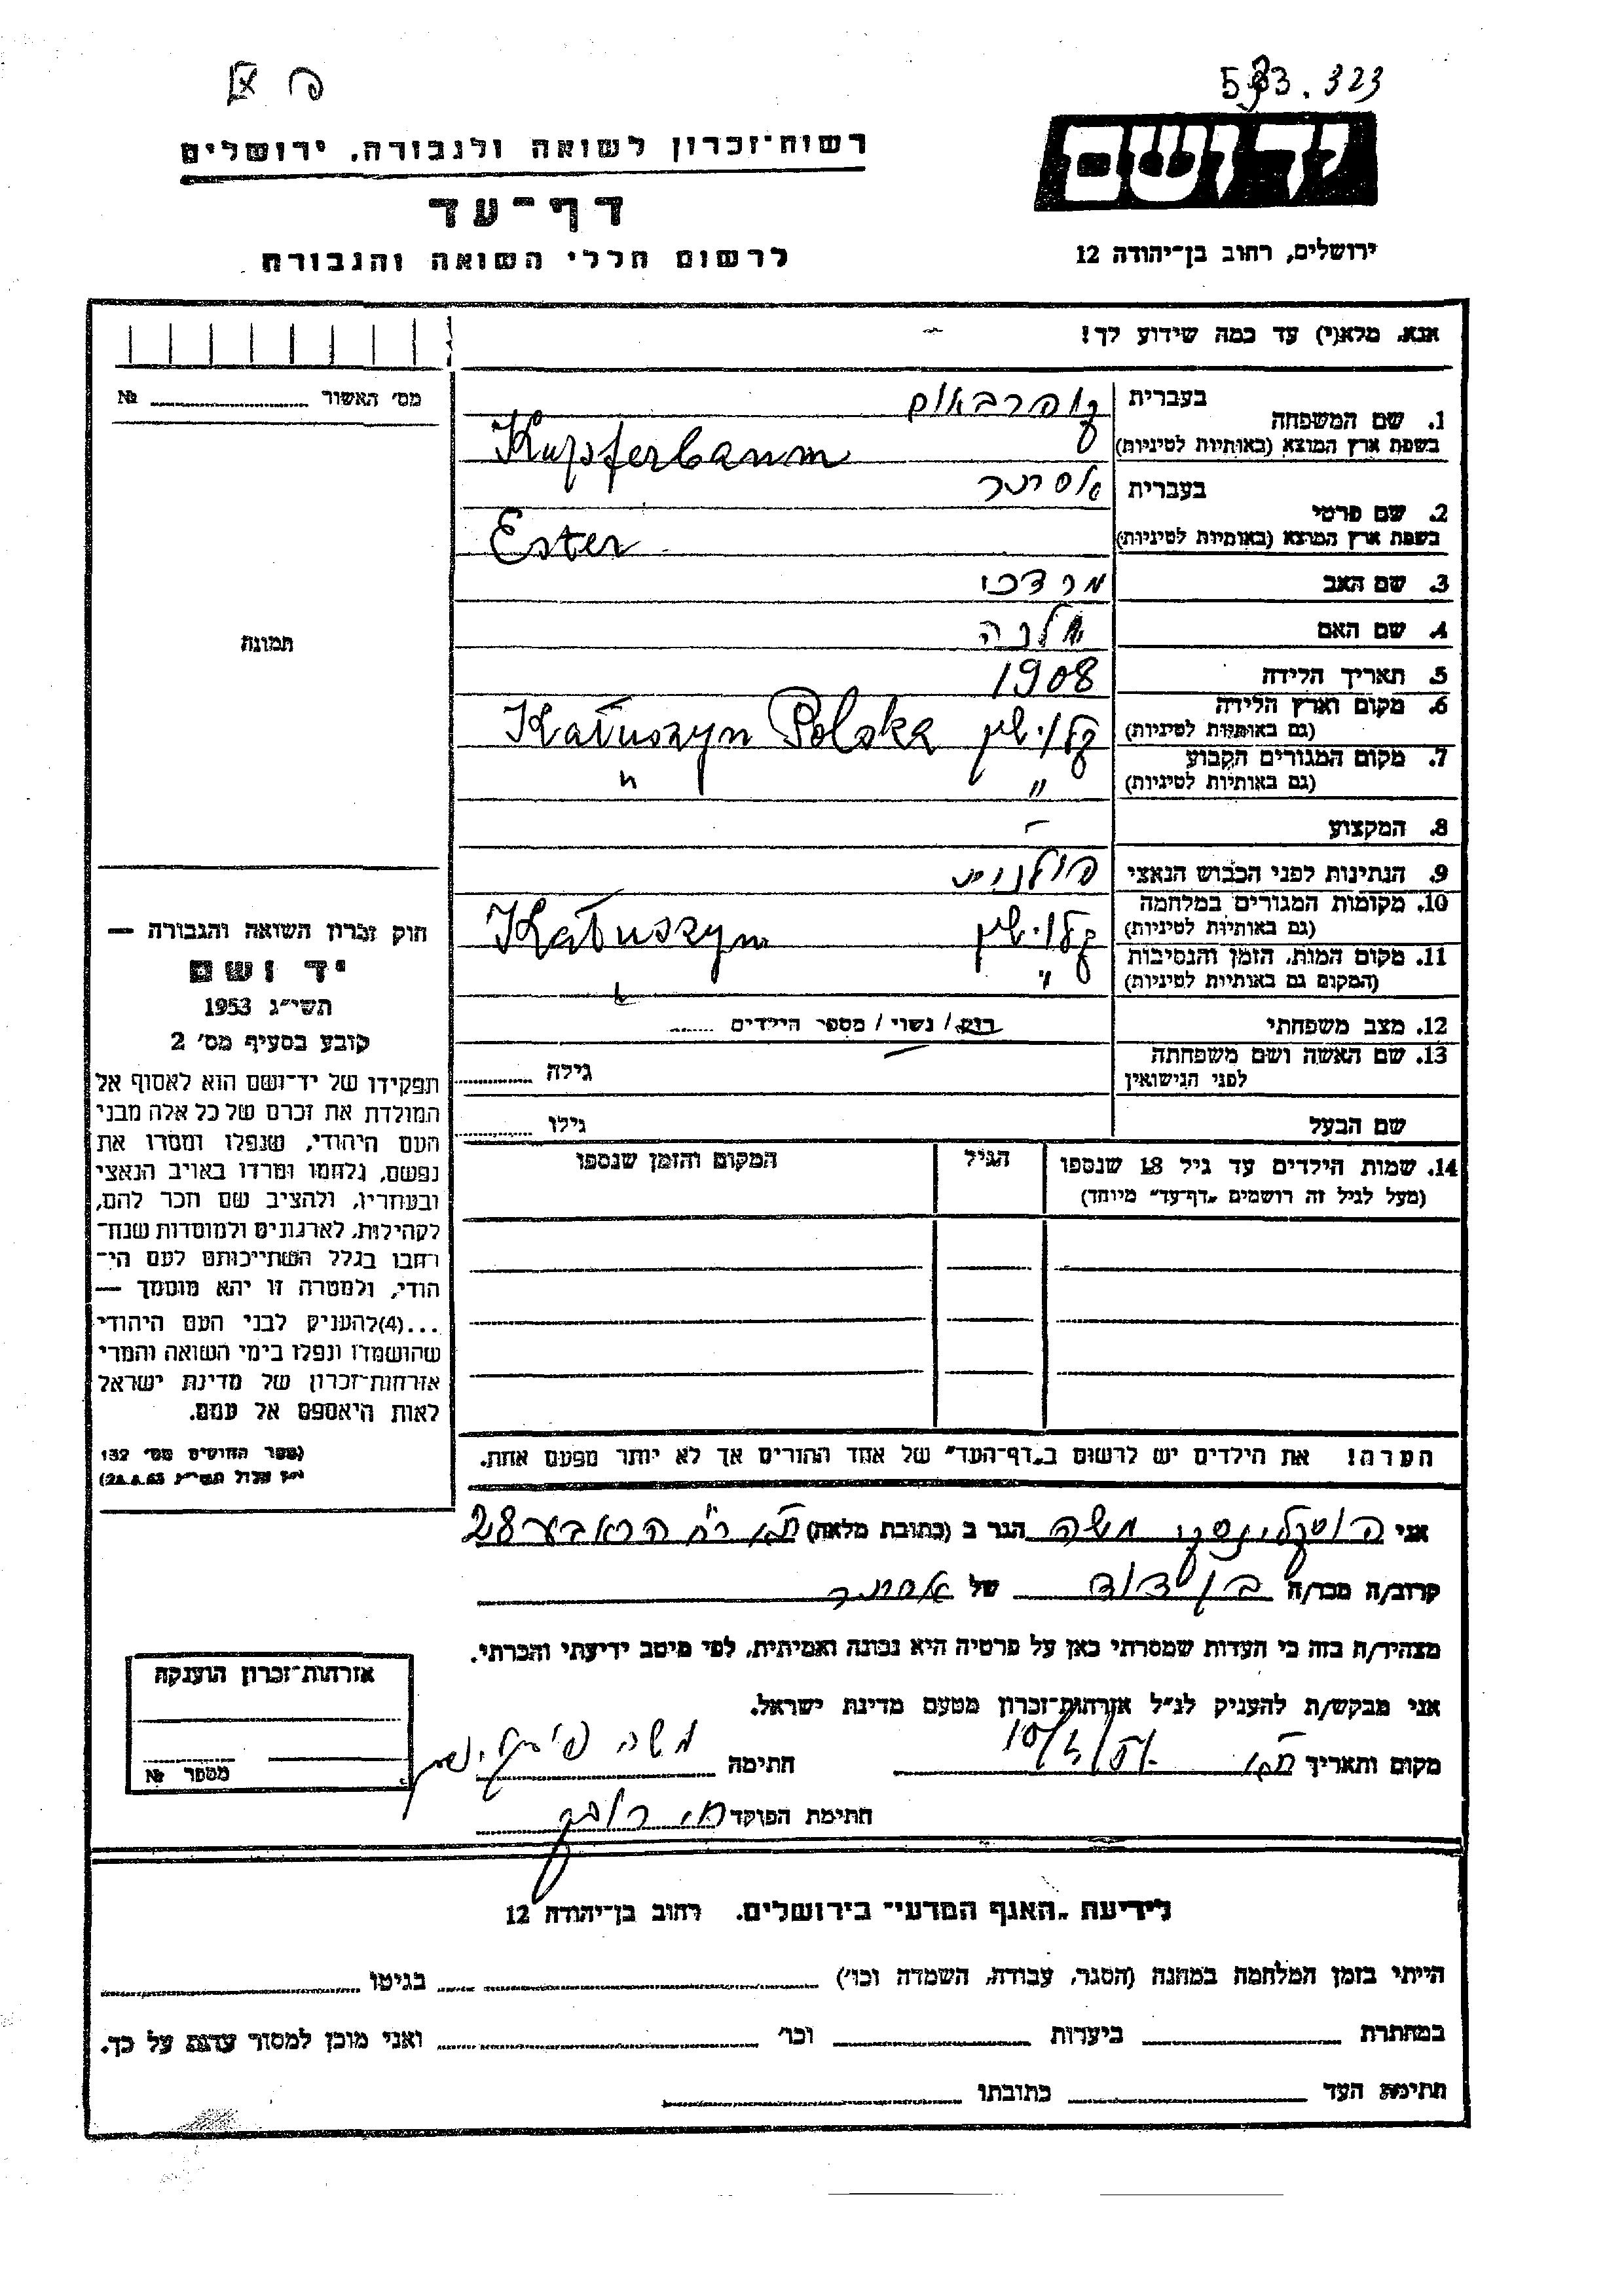 533.323
יד ושם
ירושלים, רחוב בן־יהודה 12
רשות־זכרון לשואה ולגבורה, ירושלים
דף־עד
לרשום חללי השואה והגבורה
אנא, מלא(י) עד כמה שידוע לך!
מס׳ האשור № 
1. שם המשפחה בעברית קופרבאום
בשפת ארץ המוצא (באותיות לטיניות) Kupferbaum
2. שם פרטי בעברית אסתר
בשפת ארץ המוצא (באותיות לטיניות) Ester
3. שם האב מרדכי
4. שם האם
5. תאריך הלידה 1908
6. מקום וארץ הלידה קלושין Kałuszyn Polska
(גם באותיות לטיניות)
7. מקום המגורים הקבוע " "
(גם באותיות לטיניות)
8. המקצוע -
9. הנתינות לפני הכבוש הנאצי פולנית
10. מקומות המגורים במלחמה קלושין Kałuszyn
(גם באותיות לטיניות)
11. מקום המות, הזמן והנסיבות "
(המקום גם באותיות לטיניות)
12. מצב משפחתי רווק / נשוי / מספר הילדים
13. שם האשה ושם משפחתה גילה
לפני הנישואין
שם הבעל גילו
14. שמות הילדים עד גיל 18 שנספו הגיל המקום והזמן שנספו
(מעל לגיל זה רושמים „דף־עד" מיוחד)
הערה! את הילדים יש לרשום ב„דף־העד" של אחד ההורים אך לא יותר מפעם אחת.
תמונה
חוק זכרון השואה והגבורה —
יד ושם
תשי״ג 1953
קובע בסעיף מס׳ 2
תפקידו של יד־ושם הוא לאסוף אל
המולדת את זכרם של כל אלה מבני
העם היהודי, שנפלו ומסרו את
נפשם, נלחמו ומרדו באויב הנאצי
ובעוזריו, ולהציב שם וזכר להם,
לקהילות, לארגונים ולמוסדות שנח־
רבו בגלל השתייכותם לעם הי־
הודי, ולמטרה זו יהא מוסמך —
...(4)להעניק לבני העם היהודי
שהושמדו ונפלו בימי השואה והמרי
אזרחות־זכרון של מדינת ישראל
לאות היאספם אל עמם.
(ספר החוקים מס׳ 132
אלול תשי״ג
אני משה הגר ב (כתובת מלאה) 28
קרוב/ה מכר/ה בן דוד של אסתר
מצהיר/ה בזה כי העדות שמסרתי כאן על פרטיה היא נכונה ואמיתית, לפי מיטב ידיעתי והכרתי.
אני מבקש/ת להעניק לנ״ל אזרחות־זכרון מטעם מדינת ישראל.
מקום ותאריך חתימה משה
חתימת הפוקד
אזרחות־זכרון הוענקה
מספר №
לידיעת „האגף המדעי" בירושלים, רחוב בן־יהודה 12
הייתי בזמן המלחמה במחנה (הסגר, עבודה, השמדה וכו׳) בגיטו
במחתרת ביערות וכו׳ ואני מוכן למסור עדות על כך.
חתימת העד כתובתו